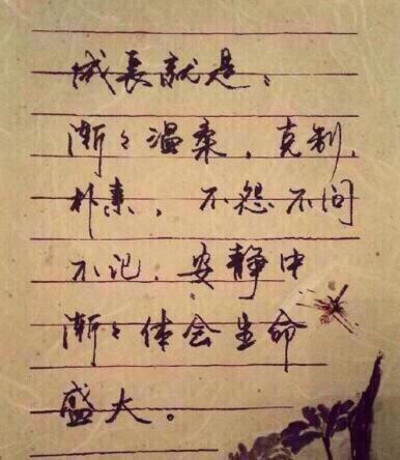 成長就是、
渐々温柔，克制，
朴素，不怨不问
不记，安静中
渐々体会生命
盛大。